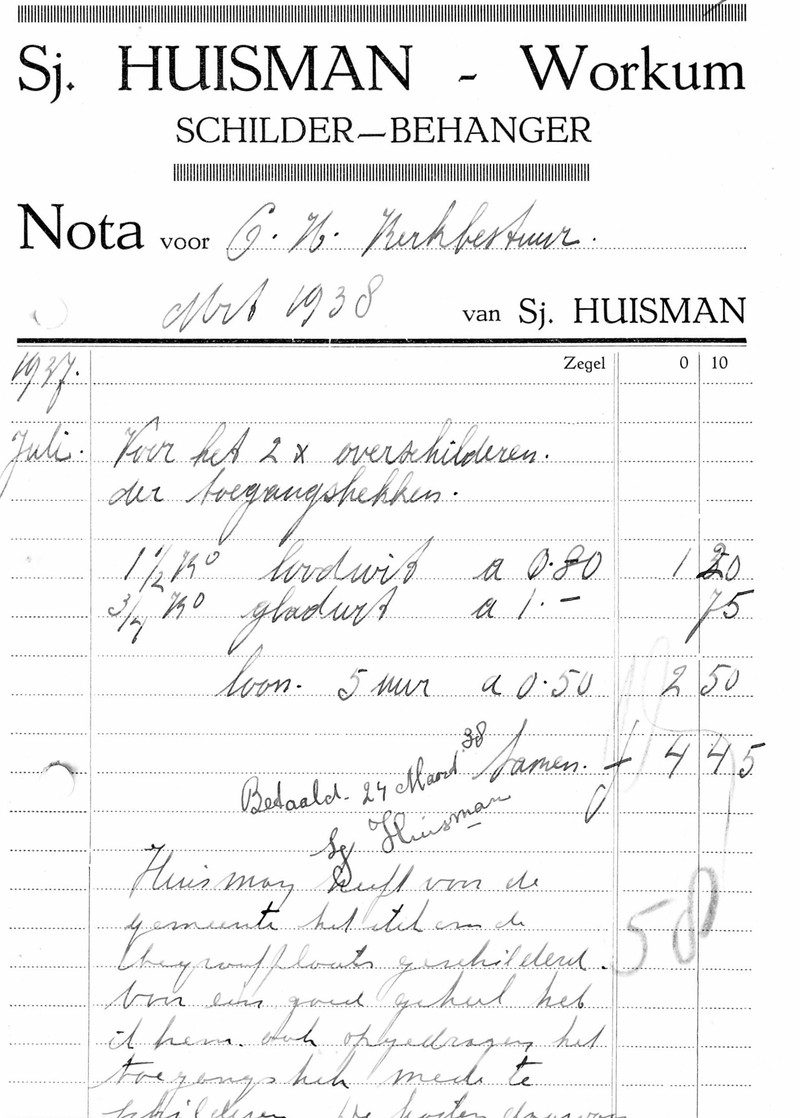 Sj. HUISMAN - Workum
SCHILDER—BEHANGER
Nota voor C. H. Kerkbestuur.
Mrt 1938 van Sj. HUISMAN
1937. Zegel 0 10
Juli. Voor het 2 x overschilderen.
der toegangshekken.
1 1/2 Ko loodwit a 0.80 1 20
3/4 Ko gladwit a 1.- 75
loon. 5 uur a 0.50 2 50
Samen. f 4 45
Betaald. 24 Maart 38
Sj Huisman
Huisman heeft voor de
gemeente het hek om de
begraafplaats geschilderd.
Voor een goed geheel heb
ik hem ook opgedragen het
toegangshek mede te
schilderen. De kosten daarvan
58